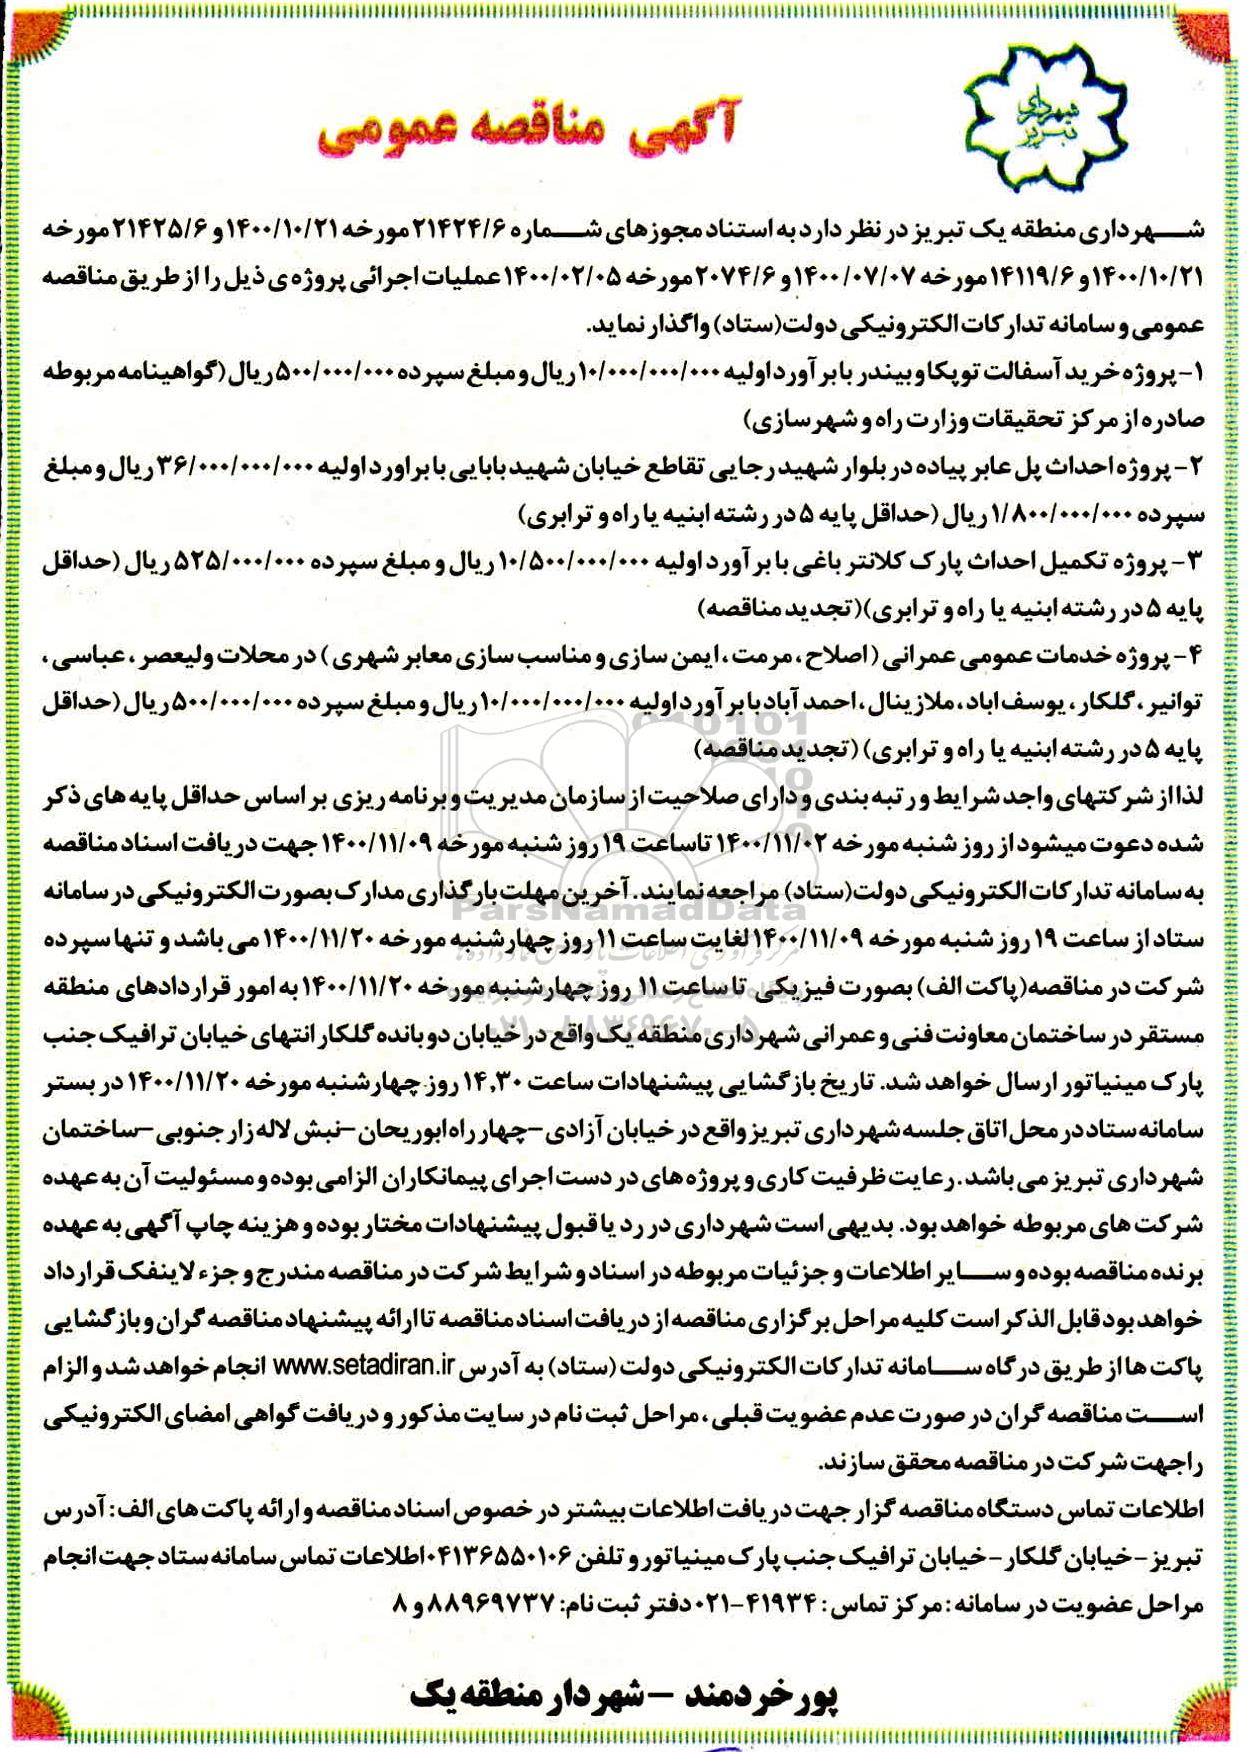 شهرداری تبریز
آگهی مناقصه عمومی
شهرداری منطقه یک تبریز در نظر دارد به استناد مجوزهای شماره ۲۱۴۲۴/۶ مورخه ۱۴۰۰/۱۰/۲۱ و ۲۱۴۲۵/۶ مورخه
۱۴۰۰/۱۰/۲۱ و ۱۴۱۱۹/۶ مورخه ۱۴۰۰/۰۷/۰۷ و ۲۰۷۴/۶ مورخه ۱۴۰۰/۰۲/۰۵ عملیات اجرائی پروژه ی ذیل را از طریق مناقصه
عمومی و سامانه تدارکات الکترونیکی دولت(ستاد) واگذار نماید.
۱- پروژه خرید آسفالت توپکا و بیندر با برآورد اولیه ۱۰/۰۰۰/۰۰۰/۰۰۰ ریال و مبلغ سپرده ۵۰۰/۰۰۰/۰۰۰ ریال (گواهینامه مربوطه
صادره از مرکز تحقیقات وزارت راه و شهرسازی)
۲- پروژه احداث پل عابر پیاده در بلوار شهید رجایی تقاطع خیابان شهید بابایی با براورد اولیه ۳۶/۰۰۰/۰۰۰/۰۰۰ ریال و مبلغ
سپرده ۱/۸۰۰/۰۰۰/۰۰۰ ریال (حداقل پایه ۵ در رشته ابنیه یا راه و ترابری)
۳- پروژه تکمیل احداث پارک کلانتر باغی با برآورد اولیه ۱۰/۵۰۰/۰۰۰/۰۰۰ ریال و مبلغ سپرده ۵۲۵/۰۰۰/۰۰۰ ریال (حداقل
پایه ۵ در رشته ابنیه یا راه و ترابری)(تجدید مناقصه)
۴- پروژه خدمات عمومی عمرانی (اصلاح، مرمت، ایمن سازی و مناسب سازی معابر شهری) در محلات ولیعصر، عباسی،
توانیر، گلکار، یوسف اباد، ملازینال، احمد آباد با برآورد اولیه ۱۰/۰۰۰/۰۰۰/۰۰۰ ریال و مبلغ سپرده ۵۰۰/۰۰۰/۰۰۰ ریال (حداقل
پایه ۵ در رشته ابنیه یا راه و ترابری) (تجدید مناقصه)
لذا از شرکتهای واجد شرایط و رتبه بندی و دارای صلاحیت از سازمان مدیریت و برنامه ریزی بر اساس حداقل پایه های ذکر
شده دعوت میشود از روز شنبه مورخه ۱۴۰۰/۱۱/۰۲ تا ساعت ۱۹ روز شنبه مورخه ۱۴۰۰/۱۱/۰۹ جهت دریافت اسناد مناقصه
به سامانه تدارکات الکترونیکی دولت(ستاد) مراجعه نمایند. آخرین مهلت بارگذاری مدارک بصورت الکترونیکی در سامانه
ParsNamadData
ستاد از ساعت ۱۹ روز شنبه مورخه ۱۴۰۰/۱۱/۰۹ لغایت ساعت ۱۱ روز چهارشنبه مورخه ۱۴۰۰/۱۱/۲۰ می باشد و تنها سپرده
شرکت در مناقصه(پاکت الف) بصورت فیزیکی تا ساعت ۱۱ روز چهارشنبه مورخه ۱۴۰۰/۱۱/۲۰ به امور قراردادهای منطقه
۰۲۱-۸۸۳۴۹۶۷۰-۵
مستقر در ساختمان معاونت فنی و عمرانی شهرداری منطقه یک واقع در خیابان دو بانده گلکار انتهای خیابان ترافیک جنب
پارک مینیاتور ارسال خواهد شد. تاریخ بازگشایی پیشنهادات ساعت ۱۴,۳۰ روز چهارشنبه مورخه ۱۴۰۰/۱۱/۲۰ در بستر
سامانه ستاد در محل اتاق جلسه شهرداری تبریز واقع در خیابان آزادی –چهار راه ابوریحان–نبش لاله زار جنوبی –ساختمان
شهرداری تبریز می باشد. رعایت ظرفیت کاری و پروژه های در دست اجرای پیمانکاران الزامی بوده و مسئولیت آن به عهده
شرکت های مربوطه خواهد بود. بدیهی است شهرداری در رد یا قبول پیشنهادات مختار بوده و هزینه چاپ آگهی به عهده
برنده مناقصه بوده و سایر اطلاعات و جزئیات مربوطه در اسناد و شرایط شرکت در مناقصه مندرج و جزء لاینفک قرارداد
خواهد بود قابل الذکر است کلیه مراحل برگزاری مناقصه از دریافت اسناد مناقصه تا ارائه پیشنهاد مناقصه گران و بازگشایی
پاکت ها از طریق درگاه سامانه تدارکات الکترونیکی دولت (ستاد) به آدرس www.setadiran.ir انجام خواهد شد و الزام
است مناقصه گران در صورت عدم عضویت قبلی، مراحل ثبت نام در سایت مذکور و دریافت گواهی امضای الکترونیکی
را جهت شرکت در مناقصه محقق سازند.
اطلاعات تماس دستگاه مناقصه گزار جهت دریافت اطلاعات بیشتر در خصوص اسناد مناقصه و ارائه پاکت های الف: آدرس
تبریز -خیابان گلکار -خیابان ترافیک جنب پارک مینیاتور و تلفن ۰۴۱۳۶۵۵۰۱۰۶ اطلاعات تماس سامانه ستاد جهت انجام
مراحل عضویت در سامانه: مرکز تماس: ۴۱۹۳۴-۰۲۱ دفتر ثبت نام: ۸۸۹۶۹۷۳۷ و ۸
پور خردمند – شهردار منطقه یک